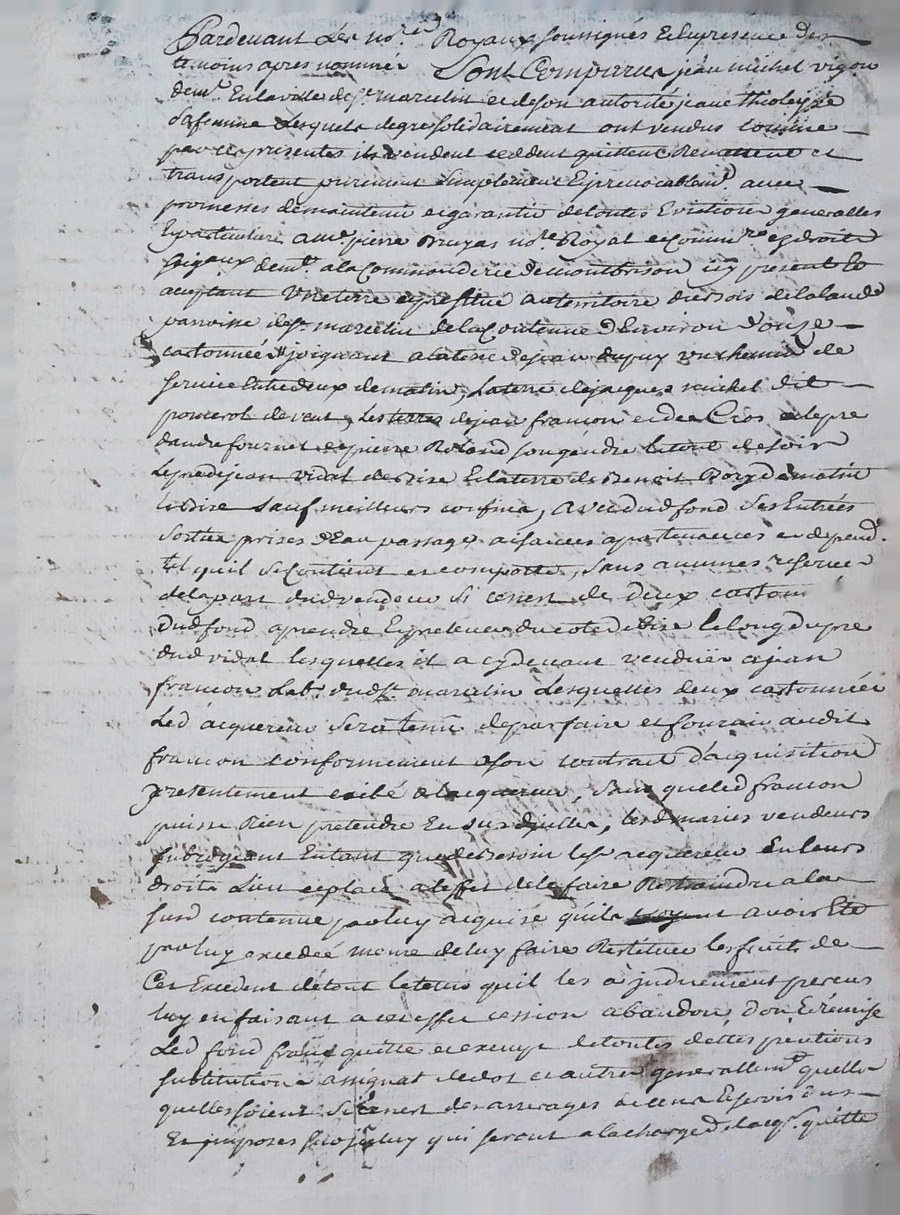 Pardevant Les no.res Royaux soussignés Et En presence des
temoins apres nommes Sont Comparus jean michel vigou
dem.t En la ville de S.t marcelin et de son autorité jeane thioleyre
sa femme Lesquels de gre solidairement ont vendus comme
par ces presentes ils vendent cedent quittent Remettent et
transportent purement simplement Et irrevocablem.t avec
promesses de maintenir et garantir de toutes Evictions generalles
Et particulieres a m.e pierre Bruyas no.re Royal et Comm.re es droits
seigaux dem.t a la Commanderie de montbrison icy present Et
aceptant Une terre et pasture au territoire du bois de la lande
parroisse de S.t marcelin de la Contenue D'Environ Donze
cartonnées joignant a la terre de jean dupuy un chemin de
service Entre deux de matin, La terre de jacques michel dit
pomerol de vent, Les terres de jean francon et des Cros et le pre
d'andre fournet et pierre Roland son gendre le tout de soir
Le pre de jean vidal de bize Et la terre de Benoit de matin
et bize sauf meilleurs confins, avec dud fond ses Entrées
Sorties prises d'Eau passages aisances apartenances et depend.
tel quil se Contient et comporte, sans aucunes reserves
de la part dud vendeur Si ce n'est de deux cartonn
Dud fond a prendre du cote de bize le long du pre
dud vidal lesquelles il a cy devant vendües a jean
francon Lab.r dud S.t marcelin Lesquelles deux cartonnées
Led acquereur Sera tenu de parfaire et fournir audit
francon conformement a son contrat d'acquisition
presentement exibé a lacquereur, Sans que led francon
puisse Rien pretendre En sus d'icelles, lesd maries vendeurs
subrogeant En tant que de besoin led acquereur En leurs
droits Lieu et place a leffet de le faire Restraindre a la
susd contenue par luy acquise qu'ils avoir Eté
par luy excedeé meme de luy faire Restituer les fruits de
Cet Excedent de tout le tems quil les a induement percus
luy en faisant a cet effet cession abandon, don Et remise
Led fond franc quitte et exempt de toutes dettes pentions
substitutions assignat de dot et autres generallem.t quelles
quelles soient Si ce n'est des arrerages de cens Et servis dus
Et imposes sur iceluy qui seront a la charge de lacq.r quitte